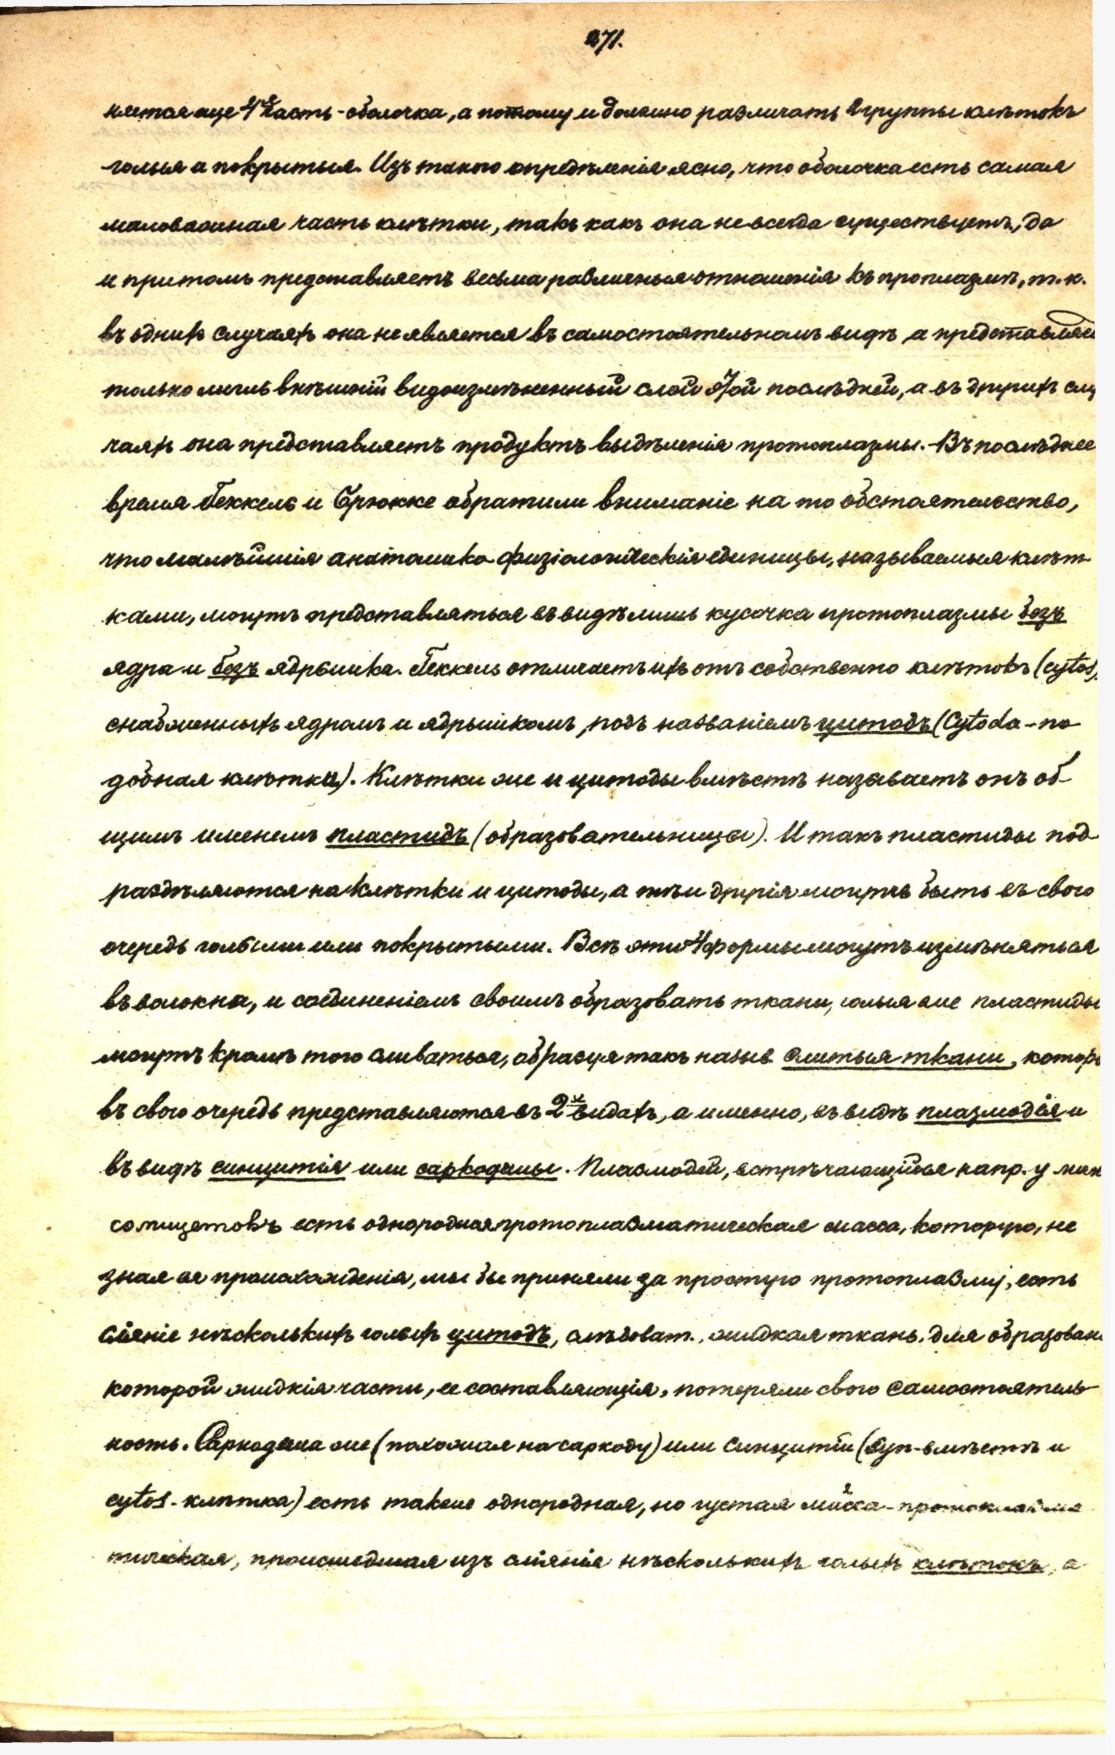 271.
няется еще 4ая часть - оболочка, а потому и должно различать 2 группы клѣтокъ
голыя а покрытыя. Изъ такого опредѣленія ясно, что оболочка есть самая
маловажная часть клѣтки, такъ какъ она не всегда существуетъ, да
и притомъ представляетъ весьма различныя отношенія къ проплазмѣ, т. к.
въ однихъ случаяхъ она не является въ самостоятельномъ видѣ, а представляе
только лишь внѣшній видоизмѣненный слой этой послѣдней, а въ другихъ слу
чаяхъ она представляетъ продуктъ выдѣленія протоплазмы. Въ послѣднее
время Геккель и Брюкке обратили вниманіе на то обстоятельство,
что малѣйшія анатомико физіологическія единицы, называемыя клѣт-
ками, могутъ представляться въ видѣ лишь кусочка протоплазмы безъ
ядра и безъ ядрышка. Геккель отличаетъ ихъ отъ собственно клѣтокъ (cytos),
снабженныхъ ядромъ и ядрышкомъ, подъ названіемъ цитодъ (Cytoda - по-
добная клѣтка). Клѣтки же и цитоды вмѣстѣ называетъ онъ об-
щимъ именемъ пластидъ (образовательницы). И такъ пластиды под-
раздѣляются на клѣтки и цитоды, а тѣ и другія могутъ быть въ свою
очередь голыми или покрытыми. Всѣ эти 4 формы могутъ измѣняться
въ волокна, и соединеніемъ своимъ образовать ткани, голыя же пластиды
могутъ кромѣ того сливаться, образуя такъ назыв слитыя ткани, котор
въ свою очередь представляются въ 2хъ видахъ, а именно, въ видѣ плазмодія и
въ видѣ синцитія или саркодемы. Плазмодій, встрѣчающійся напр. у мик
сомицетовъ есть однородная протоплазматическая масса, которую, не
зная ея происхожденія, мы бы приняли за простую протоплазму, есть
сліяніе нѣсколькихъ голыхъ цитодъ, слѣдоват., жидкая ткань, для образован
которой жидкія части, ее составляющія, потеряли свою самостоятель-
ность. Саркодема же (похожая на саркоду) или синцитій (syn - вмѣстѣ и
cytos - клѣтка) есть также однородная, но густая масса - протоплазма
тическая, происшедшая изъ сліянія нѣсколькихъ голыхъ клѣтокъ, а